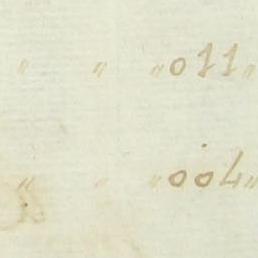 " " " 011 "
" " " 004 "